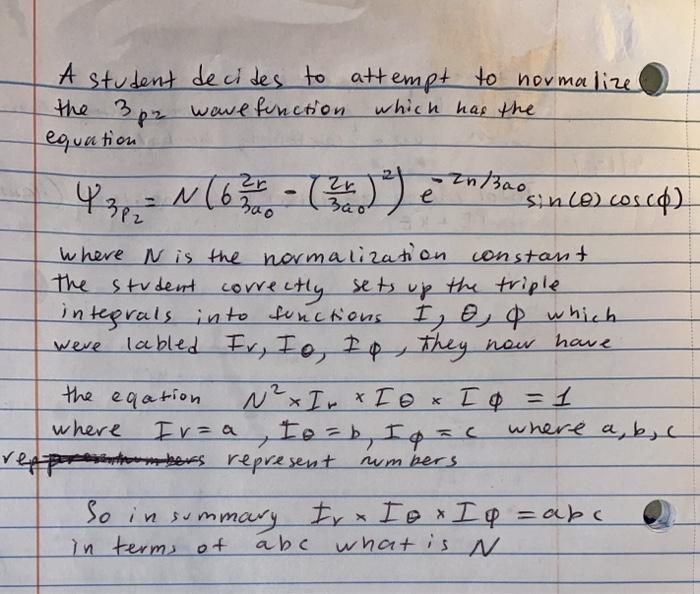 A student decides to attempt to normalize
the 3p2 wavefunction which has the
equation
Ψ3p2 = N(6 2r/3a0 - (2r/3a0)²) e^-Zn/3a0 sin(θ) cos(ϕ)
where N is the normalization constant
the student correctly sets up the triple
integrals into functions I, θ, ϕ which
were labled Ir, Iθ, Iϕ, they now have
the eqation N² x Ir x Iθ x Iϕ = 1
where Ir = a, Iθ = b, Iϕ = c where a, b, c
represent numbers
So in summary Ir x Iθ x Iϕ = abc
in terms of abc what is N